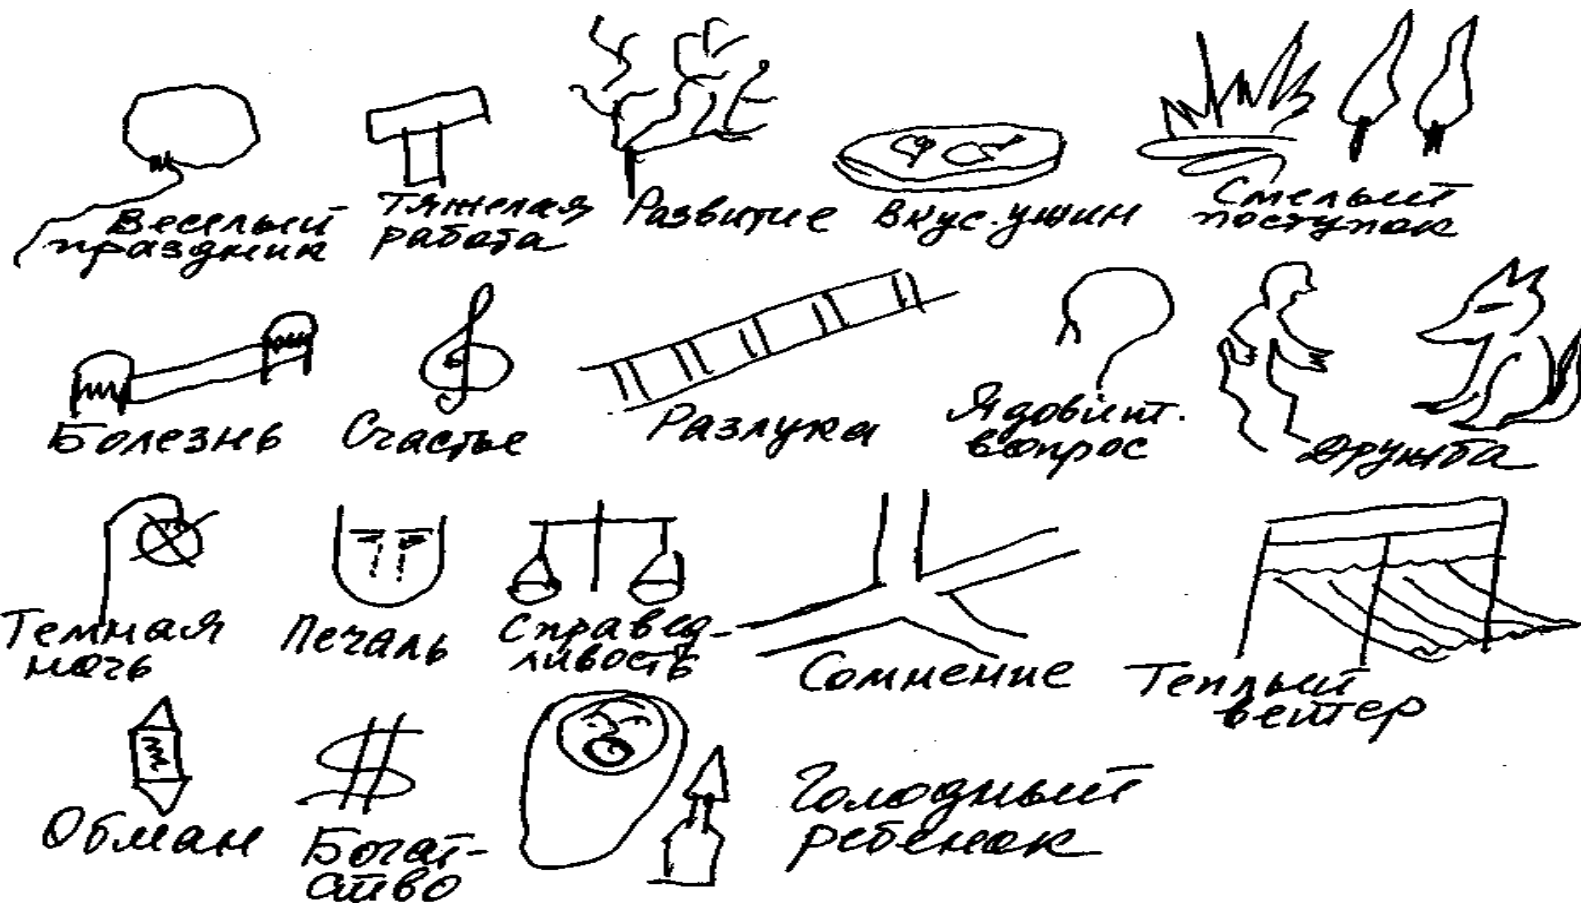 Веселый
праздник
Тяжелая
работа
Развитие
Вкус. ужин
Смелый
поступок
Болезнь
Счастье
Разлука
Ядовит.
вопрос
Дружба
Темная
ночь
Печаль
Справед-
ливость
Сомнение
Теплый
ветер
Обман
Богат-
ство
Голодный
ребенок